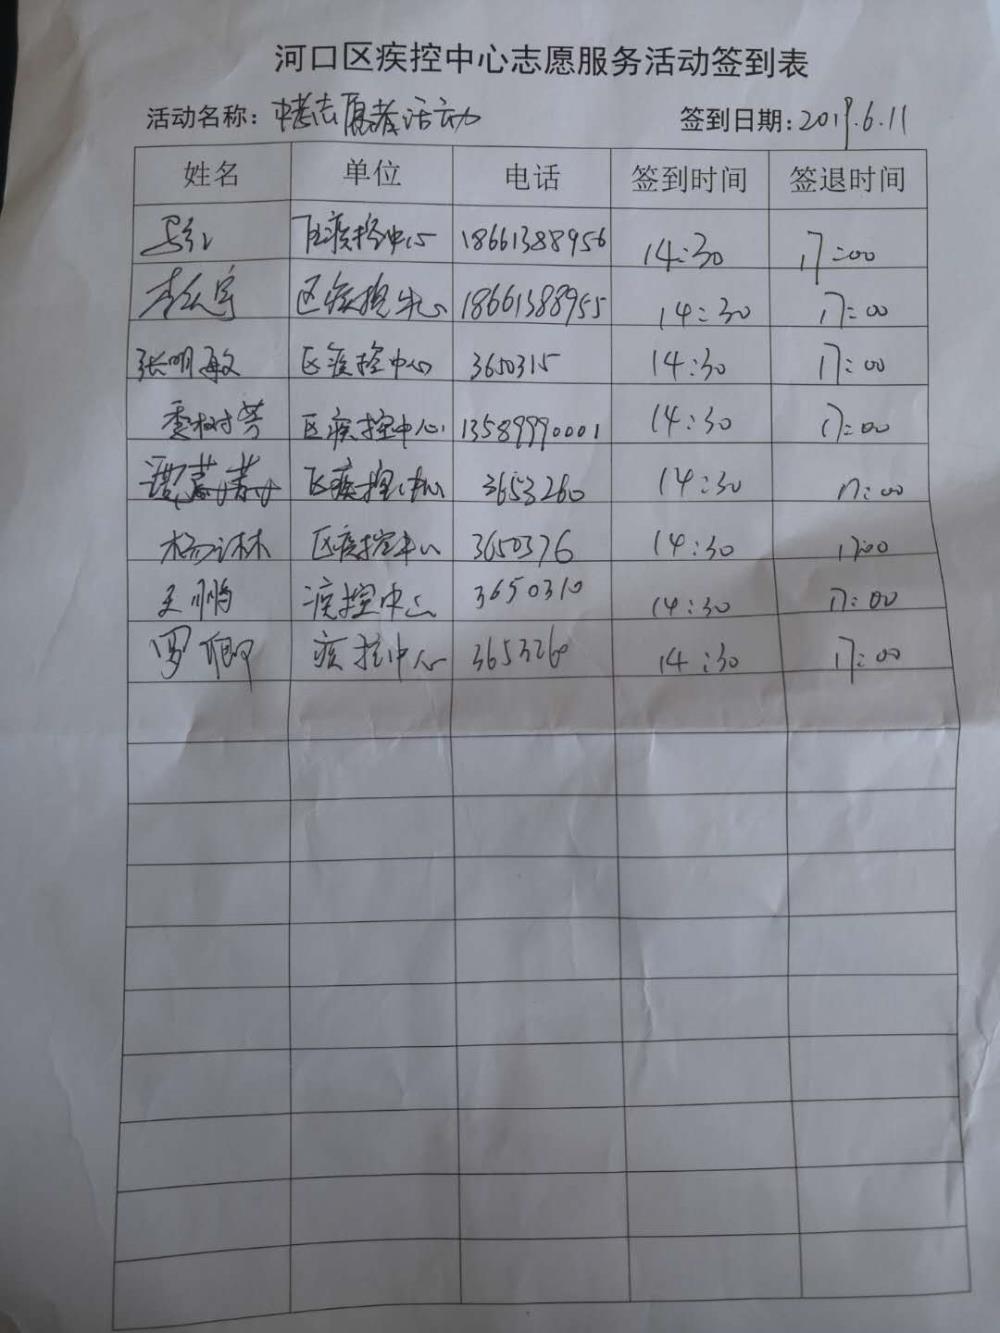 河口区疾控中心志愿服务活动签到表
活动名称：中考志愿者活动 签到日期：2019.6.11
姓名 单位 电话 签到时间 签退时间
区疾控中心 18661388956 14:30 17:00
区疾控中心 18661388955 14:30 17:00
张明敏 区疾控中心 3650315 14:30 17:00
季树芳 区疾控中心 13589990001 14:30 17:00
区疾控中心 3653260 14:30 17:00
区疾控中心 3650376 14:30 17:00
王鹏 疾控中心 3650310 14:30 17:00
罗卿 疾控中心 3653260 14:30 17:00